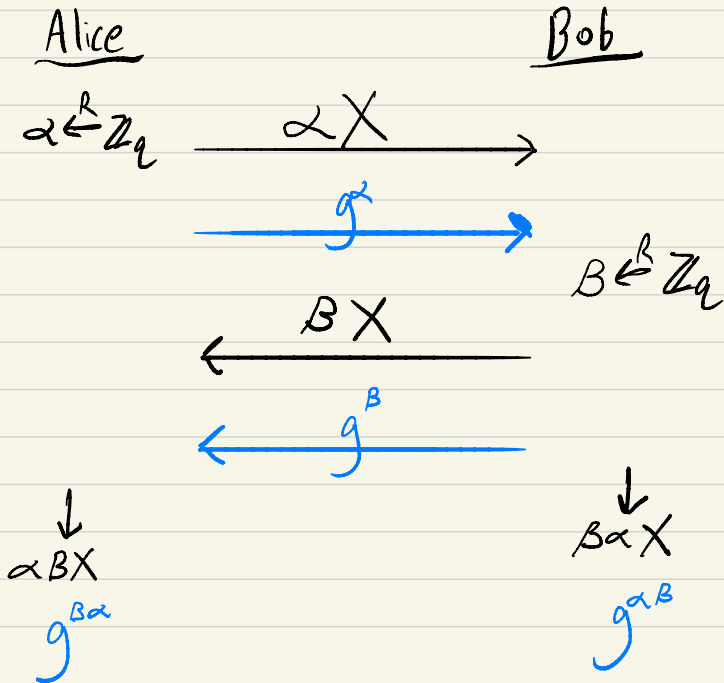 Alice Bob
α ←R ℤq αX
g^α
β ←R ℤq
βX
g^β
αβX βαX
g^βα g^αβ